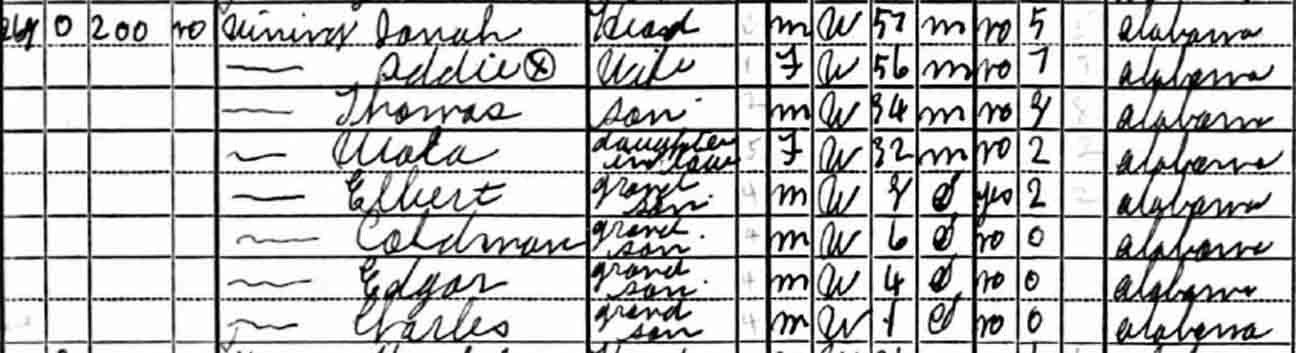 0 200 no Jonah Head m W 57 m no 5 Alabama
— Addie ⓧ Wife F W 56 m no 7 Alabama
— Thomas son m W 34 m no 8 Alabama
— daughter in law F W 32 m no 2 Alabama
— Elbert grand son m W 8 S yes 2 Alabama
— Coldman grand son m W 6 S no 0 Alabama
— Edgar grand son m W 4 S no 0 Alabama
— Charles grand son m W 1 S no 0 Alabama